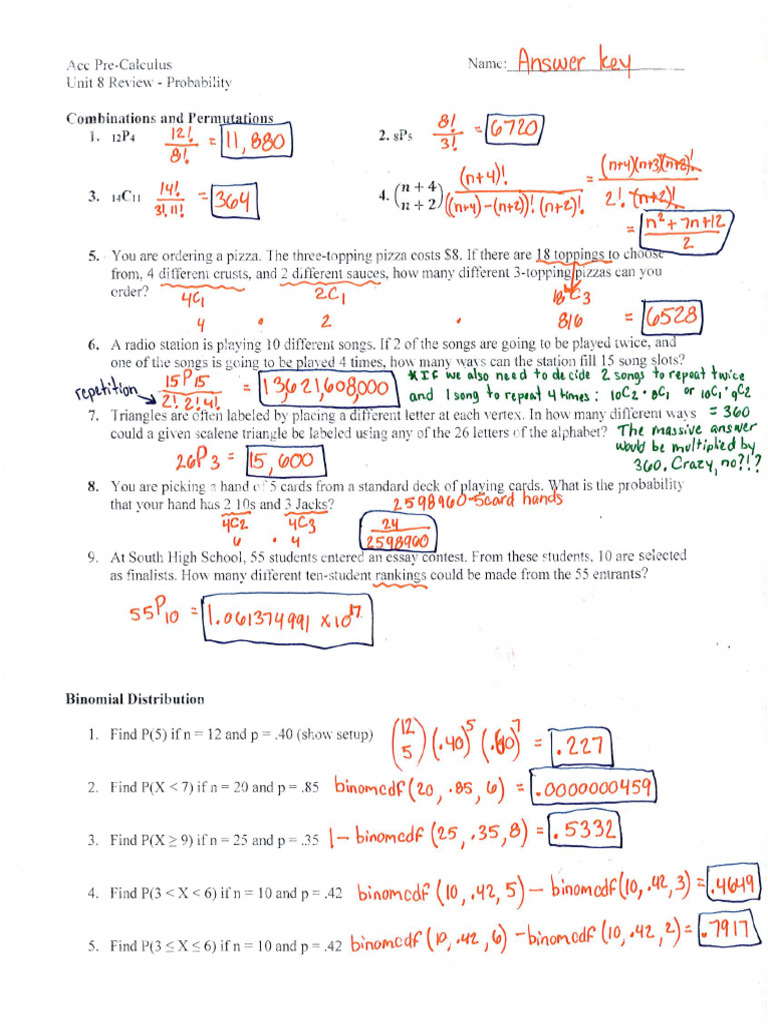 Acc Pre-Calculus Name: Answer key
Unit 8 Review - Probability
Combinations and Permutations
1. 12P4 12!/8! = 11,880 2. 8P5 8!/3! = 6720
3. 14C11 14!/3!·11! = 364 4. (n + 4 / n + 2) (n+4)!/((n+4)-(n+2))!·(n+2)! = (n+4)(n+3)(n+2)!/2!·(n+2)!
= n²+7n+12/2
5. You are ordering a pizza. The three-topping pizza costs $8. If there are 18 toppings to choose
from, 4 different crusts, and 2 different sauces, how many different 3-topping pizzas can you
order? 4C1 2C1 18C3
4 · 2 · 816 = 6528
6. A radio station is playing 10 different songs. If 2 of the songs are going to be played twice, and
one of the songs is going to be played 4 times, how many ways can the station fill 15 song slots?
repetition 15P15/2!·2!·4! = 13,621,608,000 *If we also need to decide 2 songs to repeat twice
and 1 song to repeat 4 times: 10C2 · 8C1 or 10C1 · 9C2
= 360
7. Triangles are often labeled by placing a different letter at each vertex. In how many different ways
could a given scalene triangle be labeled using any of the 26 letters of the alphabet? The massive answer
would be multiplied by
360. Crazy, no?!?
26P3 = 15,600
8. You are picking a hand of 5 cards from a standard deck of playing cards. What is the probability
that your hand has 2 10s and 3 Jacks? 2598960 - 5 card hands
4C2 4C3 24/2598960
6 · 4
9. At South High School, 55 students entered an essay contest. From these students, 10 are selected
as finalists. How many different ten-student rankings could be made from the 55 entrants?
55P10 = 1.061374991 x10^17
Binomial Distribution
1. Find P(5) if n = 12 and p = .40 (show setup) (12 / 5) (.40)^5 (.60)^7 = .227
2. Find P(X < 7) if n = 20 and p = .85 binomcdf(20, .85, 6) = .0000000459
3. Find P(X ≥ 9) if n = 25 and p = .35 1 - binomcdf(25, .35, 8) = .5332
4. Find P(3 < X < 6) if n = 10 and p = .42 binomcdf(10, .42, 5) - binomcdf(10, .42, 3) = .4649
5. Find P(3 ≤ X ≤ 6) if n = 10 and p = .42 binomcdf(10, .42, 6) - binomcdf(10, .42, 2) = .7917